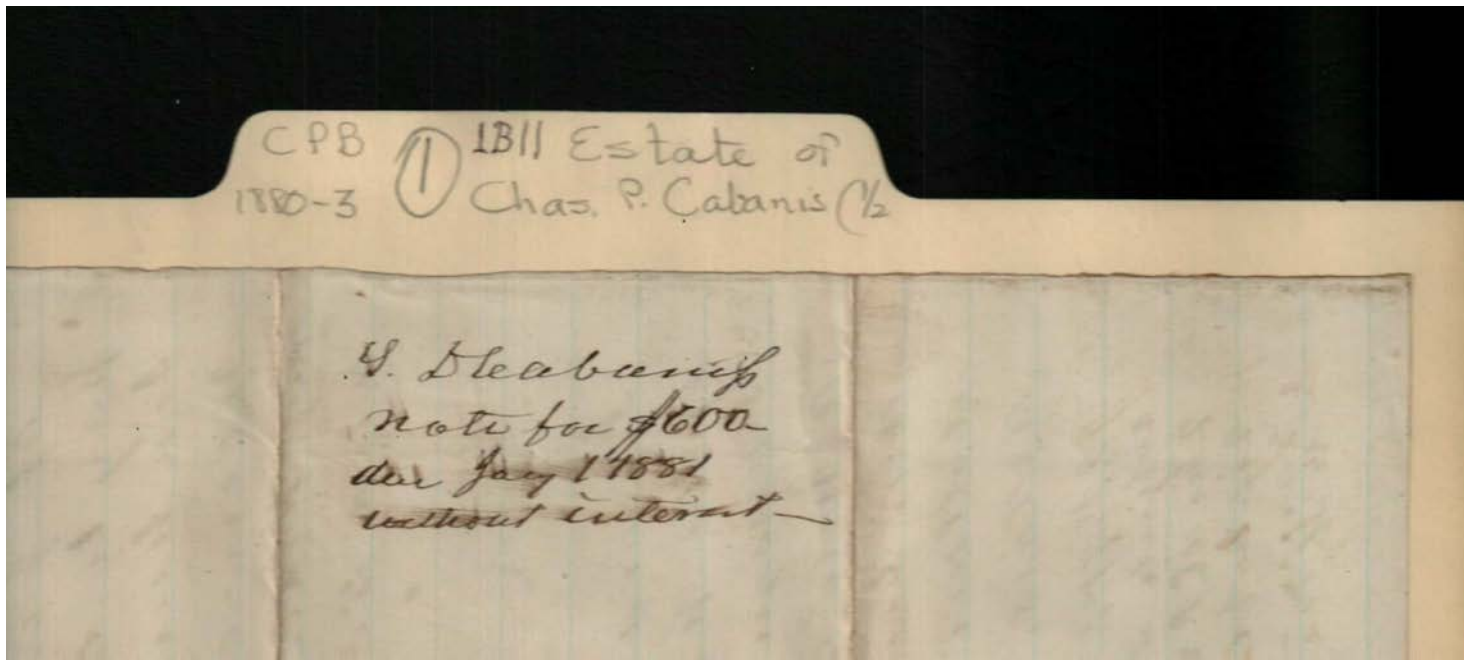 CPB 1 1B11 Estate of
1880-3 Chas. P. Cabanis (1/2
S. D Cabaniss
note for $600
due Jany 1 1881
without interest